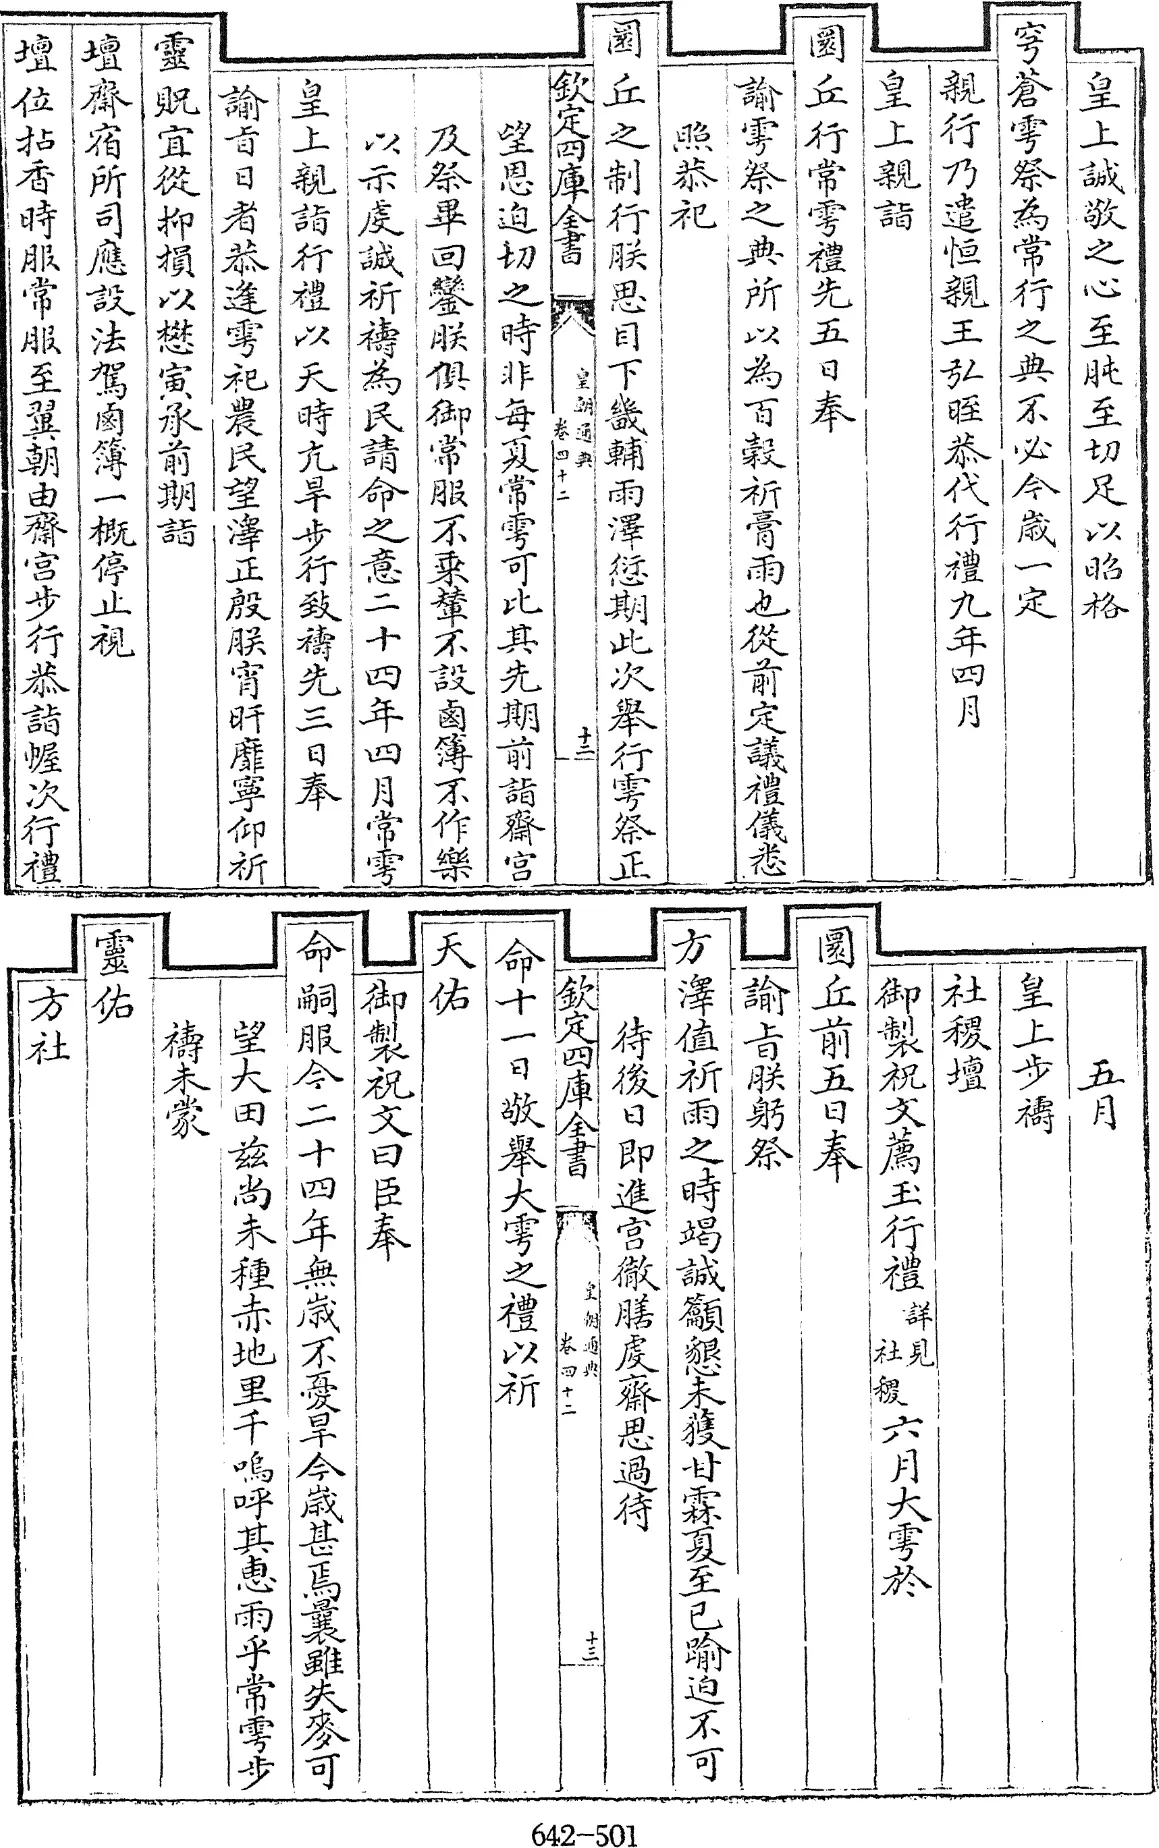 皇上誠敬之心至肫至切足以昭格
穹蒼雩祭為常行之典不必今歲一定
親行乃遣恒親王弘晊恭代行禮九年四月
皇上親詣
圜丘行常雩禮先五日奉
諭雩祭之典所以為百穀祈膏雨也從前定議禮儀悉
照恭祀
圜丘之制行朕思目下畿輔雨澤愆期此次舉行雩祭正
欽定四庫全書
皇朝通典
卷四十二
十二
望恩迫切之時非每夏常雩可比其先期前詣齋宮
及祭畢回鑾朕俱御常服不乘輦不設鹵簿不作樂
以示虔誠祈禱為民請命之意二十四年四月常雩
皇上親詣行禮以天時亢旱步行致禱先三日奉
諭旨日者恭逢雩祀農民望澤正殷朕宵旰靡寧仰祈
靈貺宜從抑損以懋寅承前期詣
壇齋宿所司應設法駕鹵簿一概停止視
壇位拈香時服常服至翼朝由齋宮步行恭詣幄次行禮
五月
皇上步禱
社稷壇
御製祝文薦玉行禮詳見社稷六月大雩於
圜丘前五日奉
諭旨朕躬祭
方澤值祈雨之時竭誠籲懇未獲甘霖夏至已踰迫不可
待後日即進宮徹膳虔齋思過待
欽定四庫全書
皇朝通典
卷四十二
十三
命十一日敬舉大雩之禮以祈
天佑
御製祝文曰臣奉
命嗣服今二十四年無歲不憂旱今歲甚焉曩雖失麥可
望大田茲尚未種赤地里千嗚呼其惠雨乎常雩步
禱未蒙
靈佑
方社
642-501